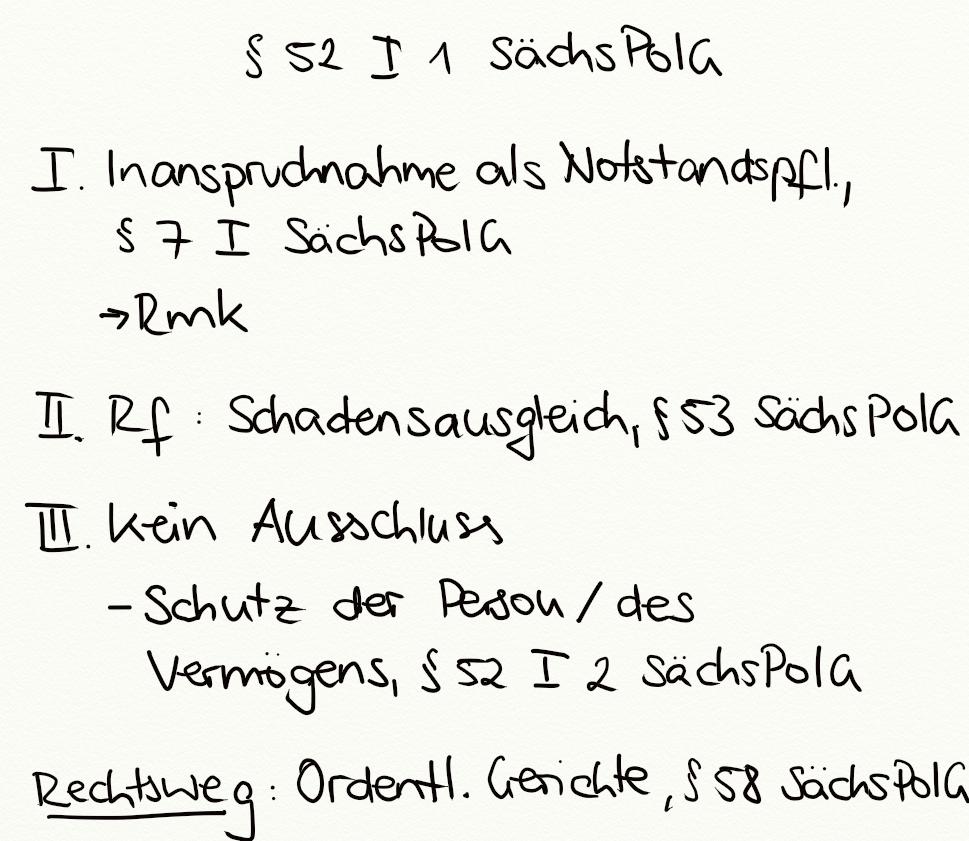 § 52 I 1 SächsPolG
I. Inanspruchnahme als Notstandspfl.,
§ 7 I SächsPolG
→ Rmk
II. Rf : Schadensausgleich, § 53 SächsPolG
III. Kein Ausschluss
- Schutz der Person / des
Vermögens, § 52 I 2 SächsPolG
Rechtsweg : Ordentl. Gerichte, § 58 SächsPolG